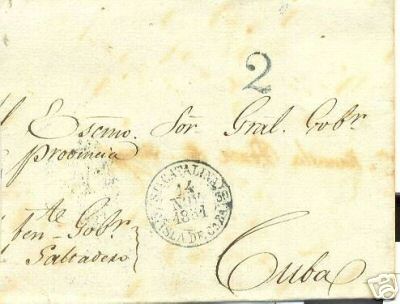 2
Escmo. Sor. Gral. Gobr.
Provincia
STA CATALINA
14
NOV
1851
ISLA DE CUBA
te Gobr.
Saltadero
Cuba